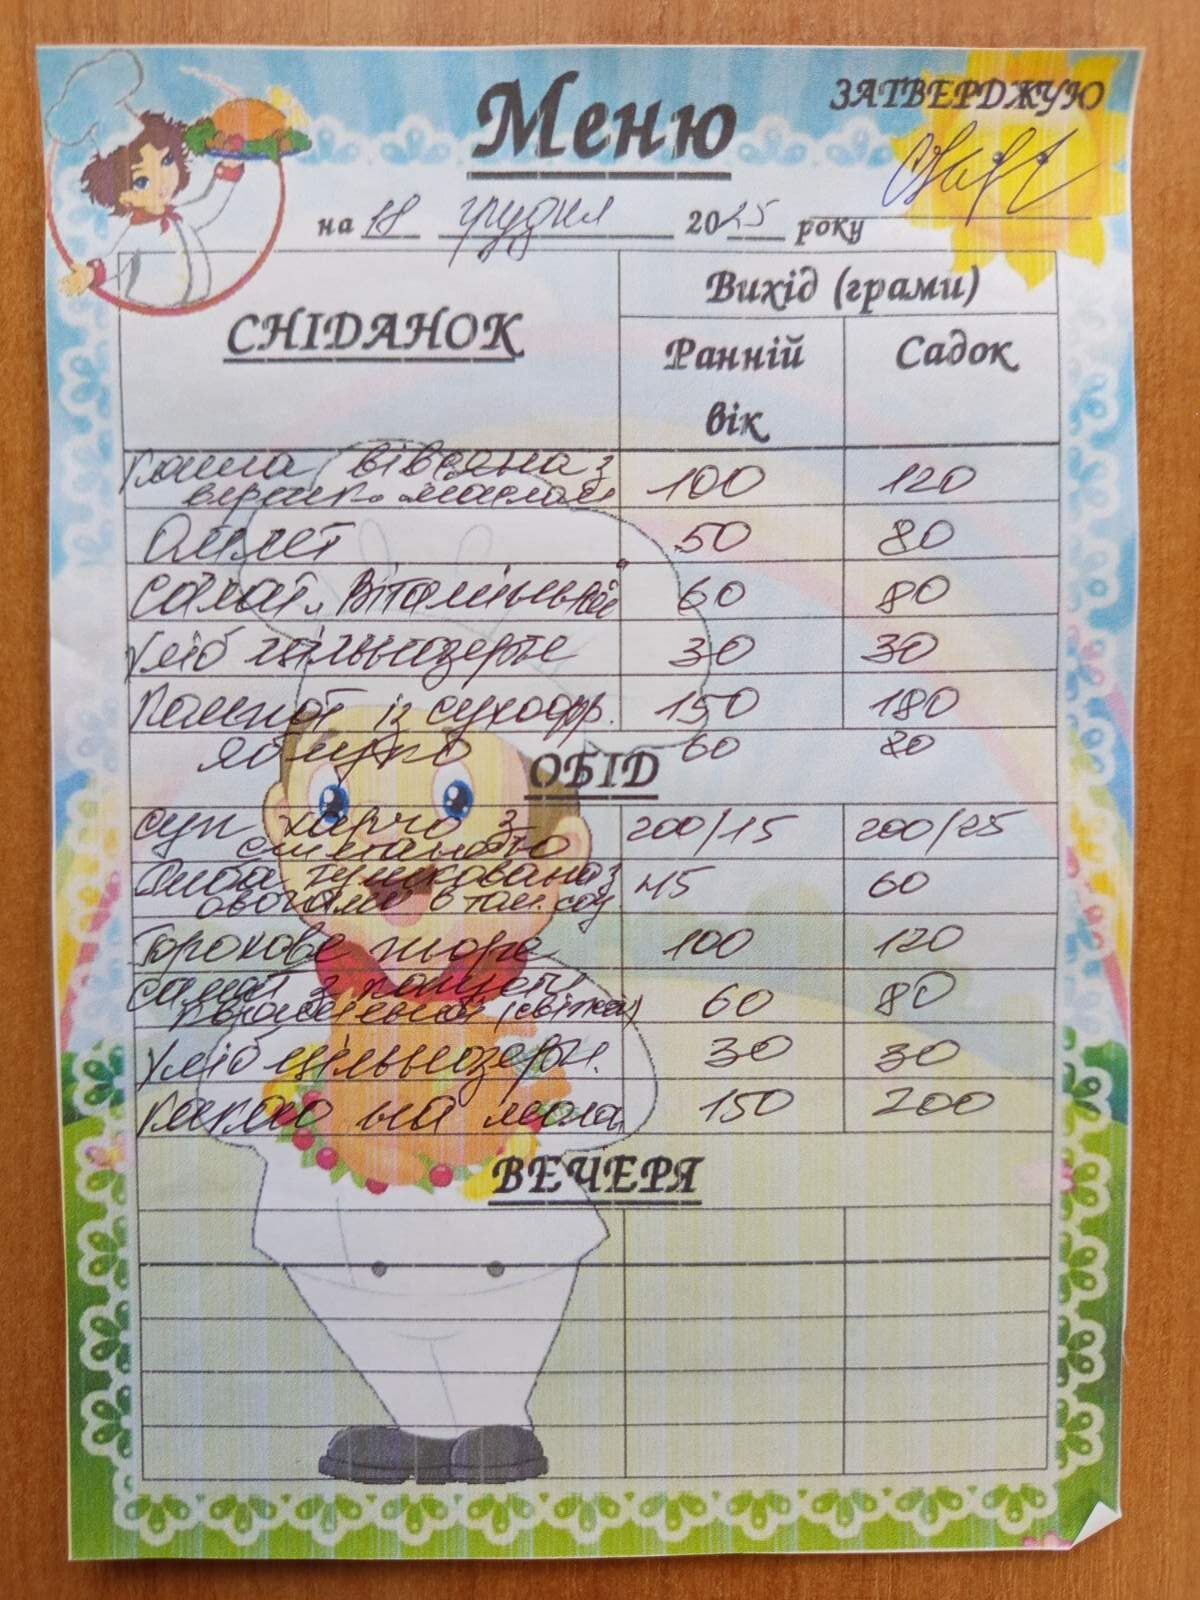 Меню
ЗАТВЕРДЖУЮ
на 18 грудня 2025 року
СНІДАНОК
Вихід (грами)
Ранній вік
Садок
Каша вівсяна з
вершк. маслом 100 120
Омлет 50 80
Салат „Вітамінний" 60 80
Хліб цільнозерн. 30 30
Компот із сухофр. 150 180
Яблуко 60 80
ОБІД
Суп харчо з
сметаною 200/15 200/25
Риба тушкована з
овочами в том. соу. 45 60
Горохове пюре 100 120
Салат з капусти
квашеної (свіжої) 60 80
Хліб цільнозерн. 30 30
Какао на мол. 150 200
ВЕЧЕРЯ